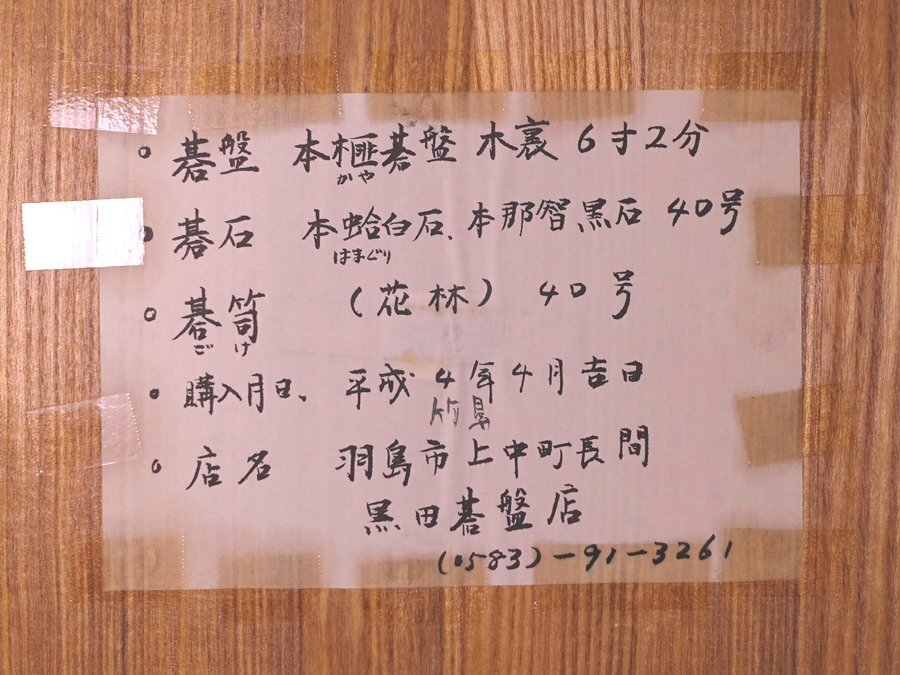 。碁盤 本榧碁盤 木裏 6寸2分
かや
。碁石 本蛤白石、本那智黒石 40号
はまぐり
。碁笥 (花林) 40号
ごけ
。購入月日、平成4年4月吉日
竹鼻
。店名 羽島市上中町長間
黒田碁盤店
(0583)-91-3261